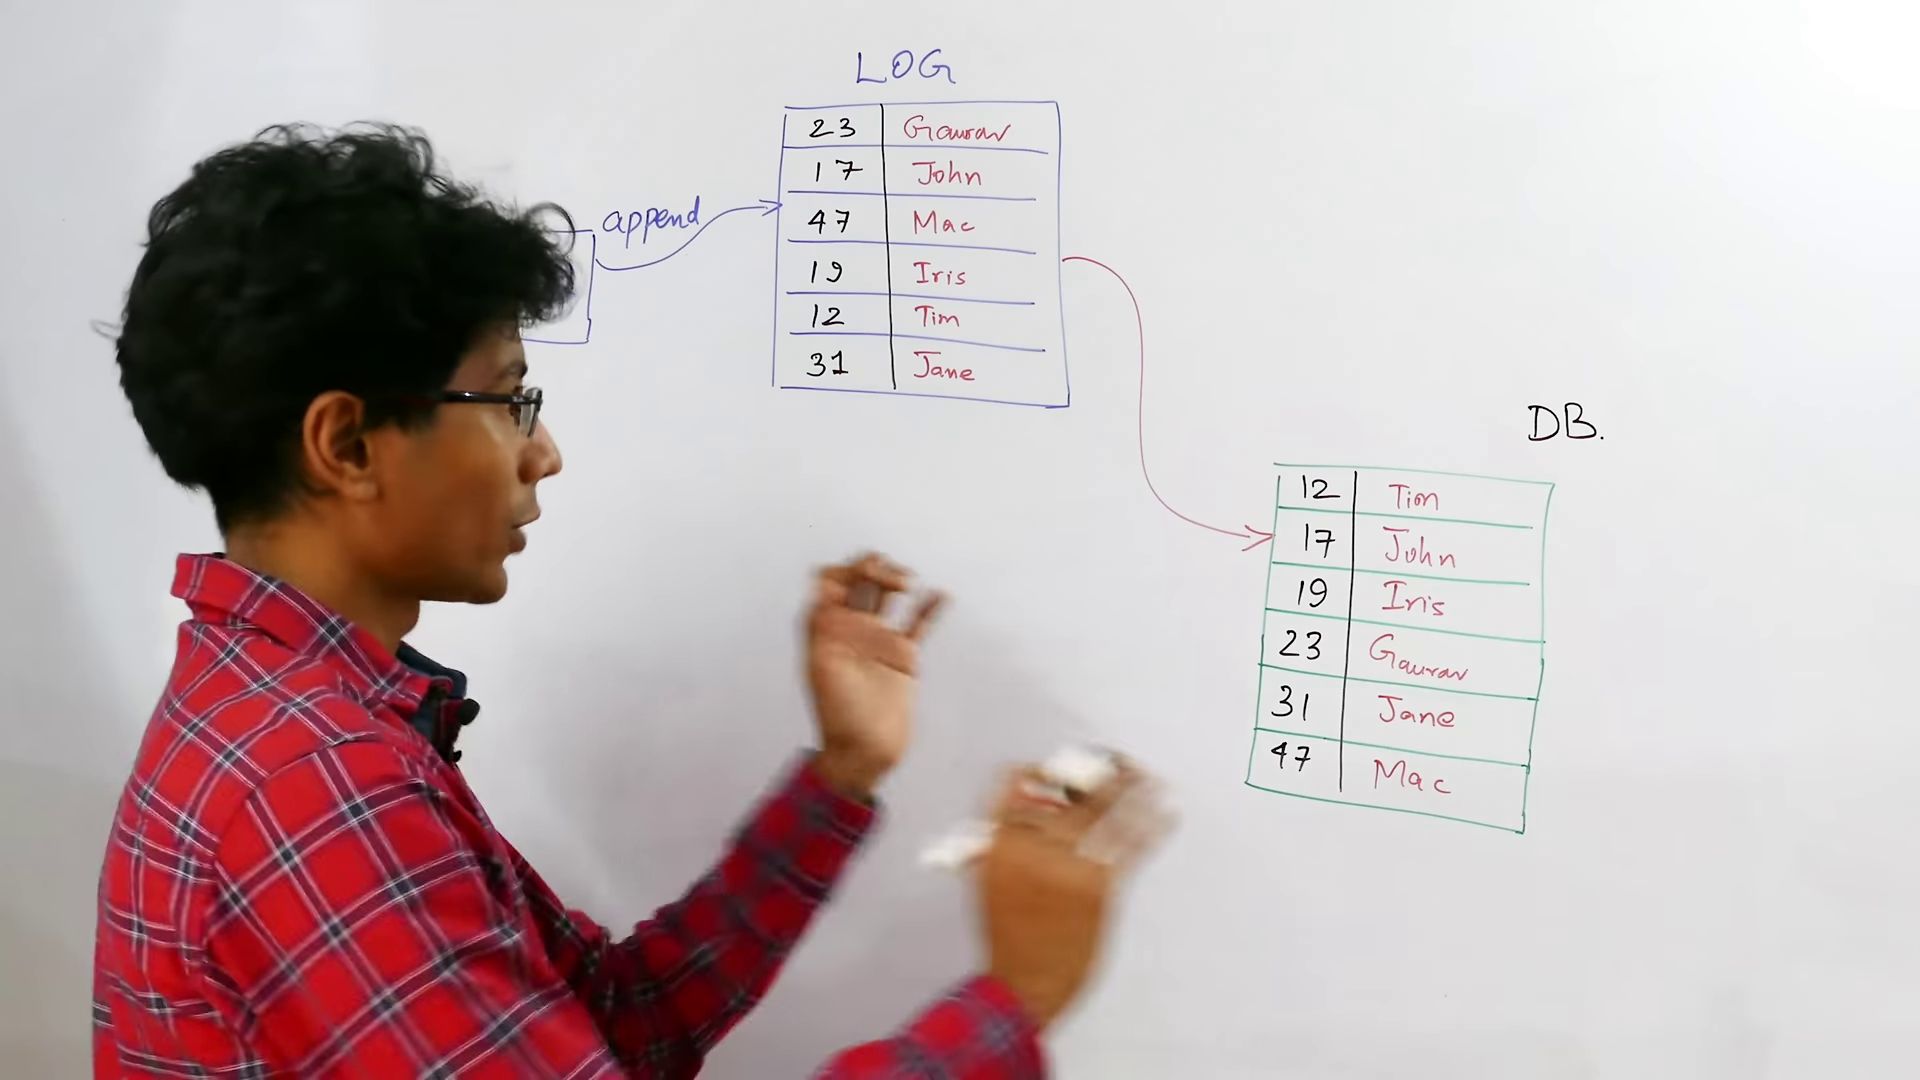 LOG
append
23 Gaurav
17 John
47 Mac
19 Iris
12 Tim
31 Jane
DB.
12 Tim
17 John
19 Iris
23 Gaurav
31 Jane
47 Mac